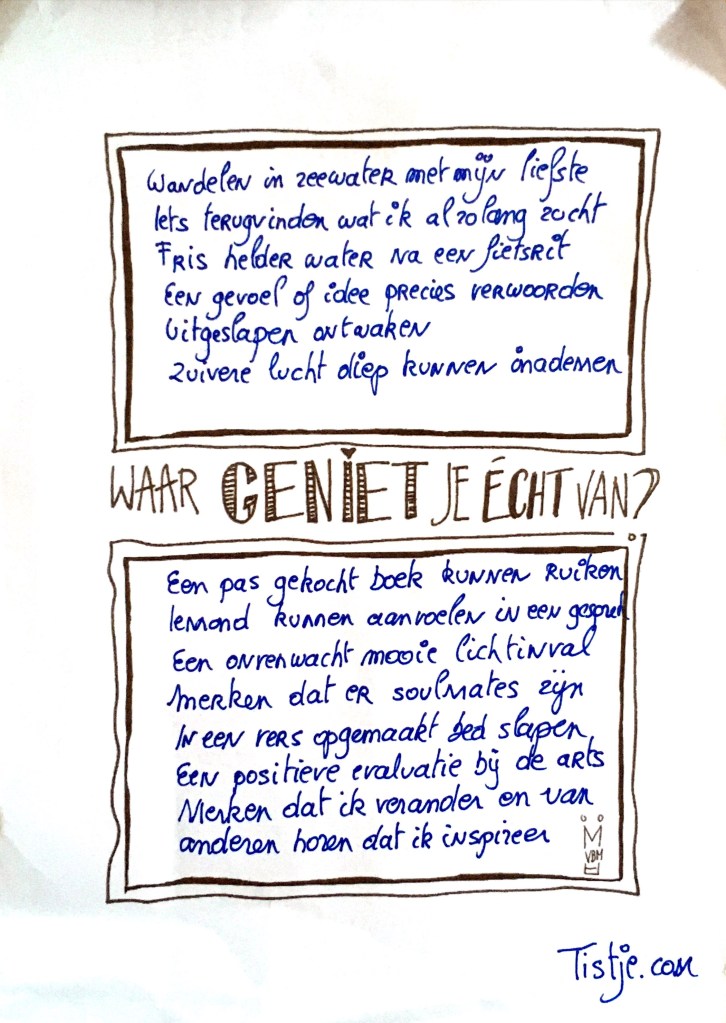 Wandelen in zeewater met mijn liefste
Iets terugvinden wat ik al zolang zocht
Fris helder water na een fietsrit
Een gevoel of idee precies verwoorden
Uitgeslapen ontwaken
Zuivere lucht diep kunnen inademen
WAAR GENIET JE ÉCHT VAN?
Een pas gekocht boek kunnen ruiken
Iemand kunnen aanvoelen in een gesprek
Een onverwacht mooie lichtinval
Merken dat er soulmates zijn
In een vers opgemaakt bed slapen
Een positieve evaluatie bij de arts
Merken dat ik verander en van
anderen horen dat ik inspireer
VBM
Tistje.com